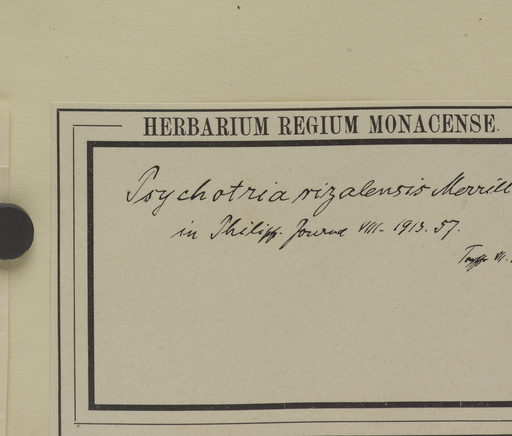 HERBARIUM REGIUM MONACENSE.
Psychotria rizalensis Merrill
in Philipp. Journal VIII. 1913. 57.